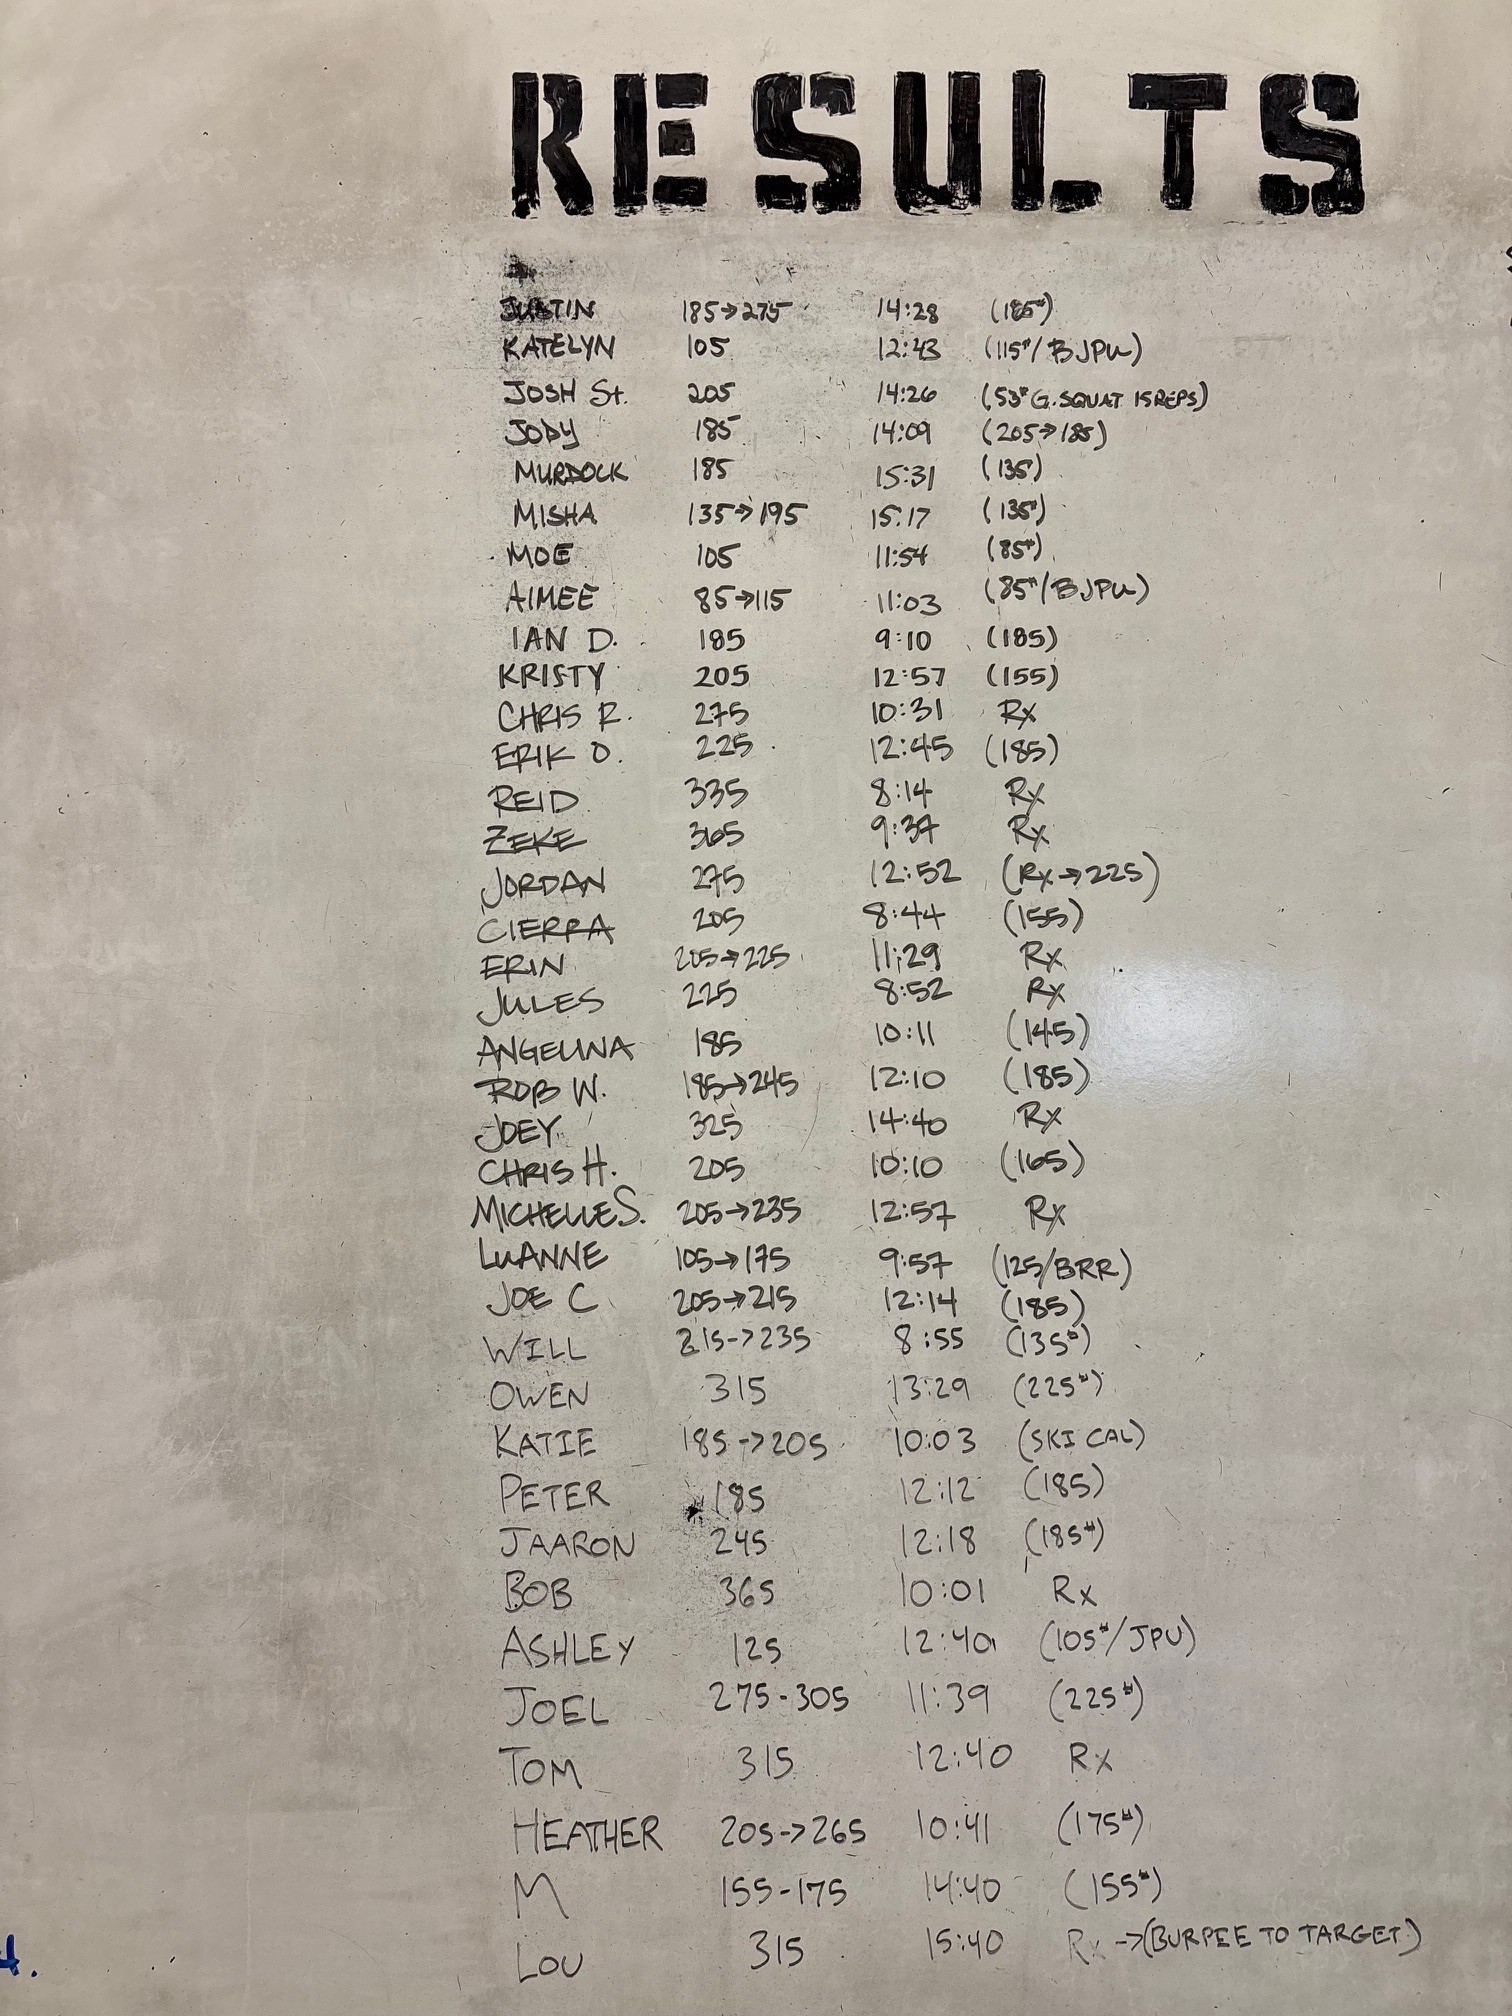 RESULTS
JUSTIN 185→275 14:28 (185#)
KATELYN 105 12:43 (115#/BJPU)
JOSH St. 205 14:26 (53# G. SQUAT 15 REPS)
JODY 185 14:09 (205→185)
MURDOCK 185 15:31 (135)
MISHA 135→195 15:17 (135#)
MOE 105 11:54 (85#)
AIMEE 85→115 11:03 (85#/BJPU)
IAN D. 185 9:10 (185)
KRISTY 205 12:57 (155)
CHRIS R. 275 10:31 Rx
ERIK O. 225 12:45 (185)
REID 335 8:14 Rx
ZEKE 365 9:37 Rx
JORDAN 275 12:52 (Rx→225)
CIERRA 205 8:44 (155)
ERIN 205→225 11:29 Rx
JULES 225 8:52 Rx
ANGELINA 185 10:11 (145)
ROB W. 185→245 12:10 (185)
JOEY 325 14:40 Rx
CHRIS H. 205 10:10 (165)
MICHELLE S. 205→235 12:57 Rx
LUANNE 105→175 9:57 (125/BRR)
JOE C 205→215 12:14 (185)
WILL 215->235 8:55 (135#)
OWEN 315 13:29 (225#)
KATIE 185->205 10:03 (SKI CAL)
PETER 185 12:12 (185)
JAARON 245 12:18 (185#)
BOB 365 10:01 Rx
ASHLEY 125 12:40 (105#/JPU)
JOEL 275-305 11:39 (225#)
TOM 315 12:40 Rx
HEATHER 205->265 10:41 (175#)
M 155-175 14:40 (155#)
LOU 315 15:40 Rx ->(BURPEE TO TARGET)